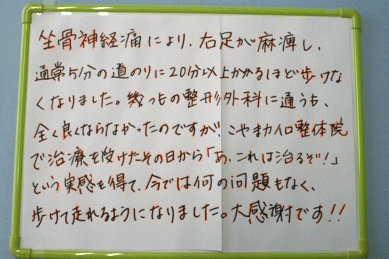 坐骨神経痛により、右足が麻痺し、
通常5分の道のりに20分以上かかるほど歩けな
くなりました。幾つもの整形外科に通うも、
全く良くならなかったのですが、こやま
で治療を受けたその日から「あ、これは治るぞ!」
という実感を得て、今では何の問題もなく、
歩けて走れるようになりました。大感謝です!!